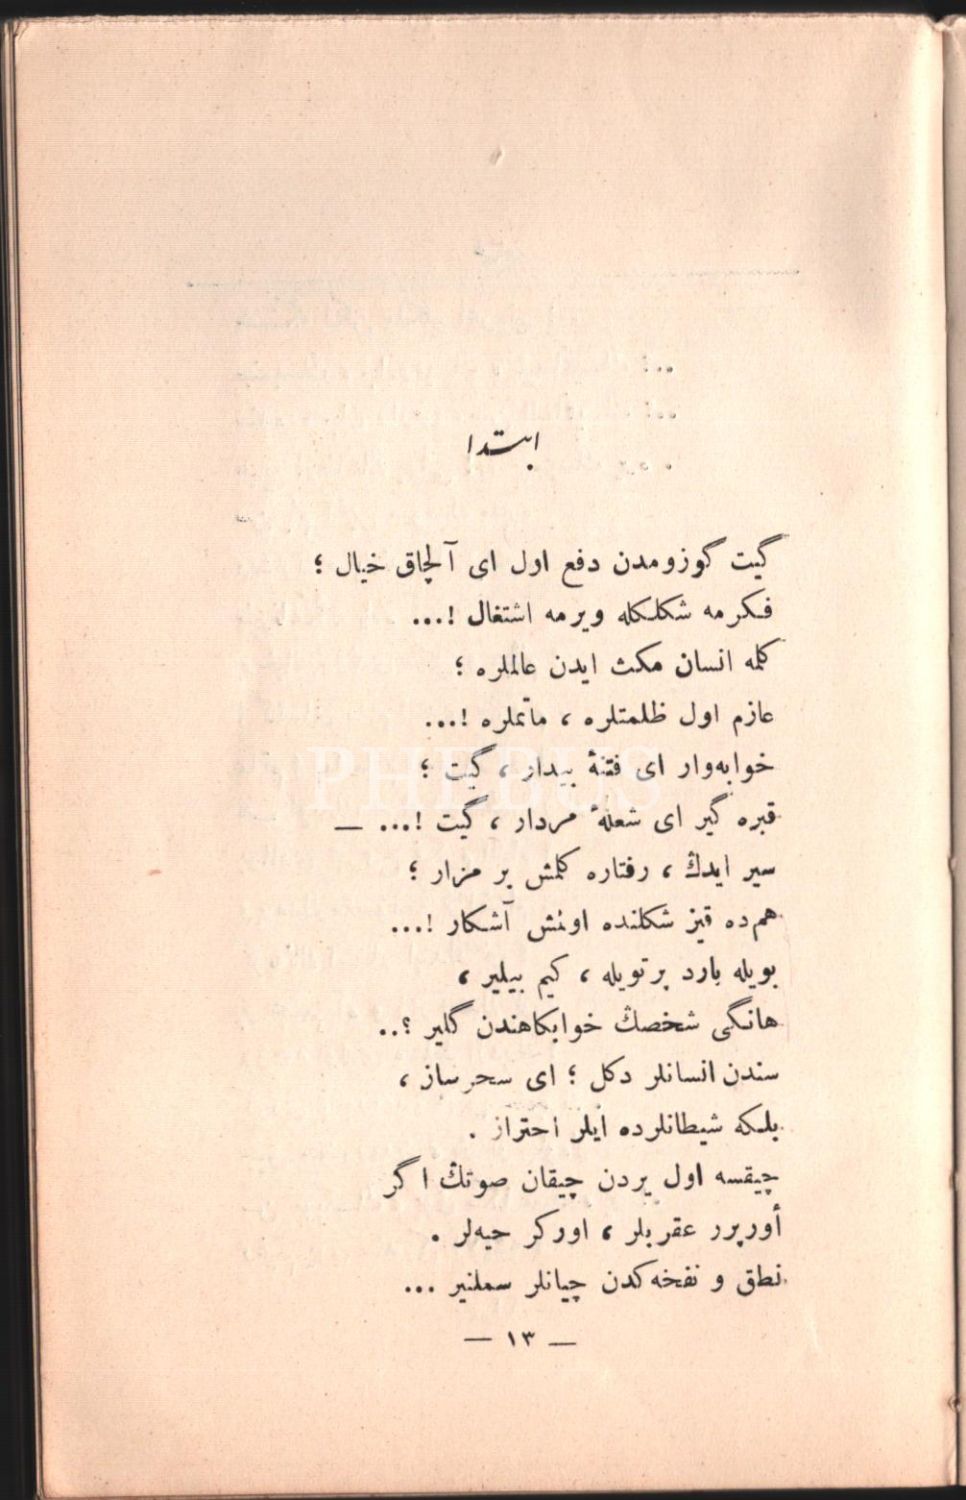 ابتدا
گیت گوزومدن دفع اول ای آلچاق خیال ؛
فکرمه شکلکله ویرمه اشتغال !...
کلمه انسان مکث ایدن عالملره ؛
عازم اول ظلمتلره ، ماتملره !...
خوابه‌وار ای فتنهٔ بیدار ، گیت ؛
قبره گیر ای شعلهٔ مردار ، گیت !... —
سیر ایدڭ ، رفتاره کلمش بر مزار ؛
هم‌ده قیز شکلنده اولمش آشکار !...
بویله بارد برتویله ، کیم بیلیر ،
هانگی شخصڭ خوابکاهندن گلیر ؟..
سندن انسانلر دکل ؛ ای سحرساز ،
بلکه شیطانلرده ایلر احتراز .
چیقسه اول یردن چیقان صوتڭ اگر
أورپرر عقربلر ، اورکر حیه‌لر .
نطق و نفخه‌کدن چیانلر سملنیر ...
— ١٣ —
PHEBUS